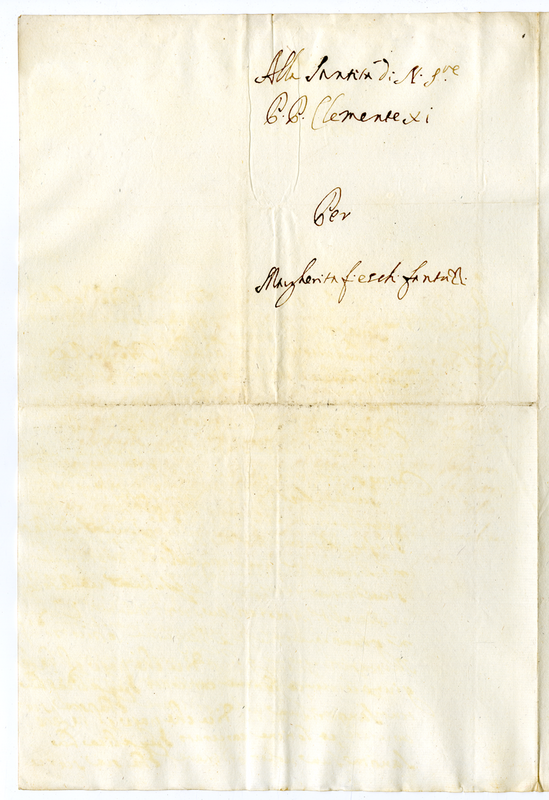 Alla Santità di N. Sre
P. P. Clemente xi
Per
Margherita fieschi fantuzzi